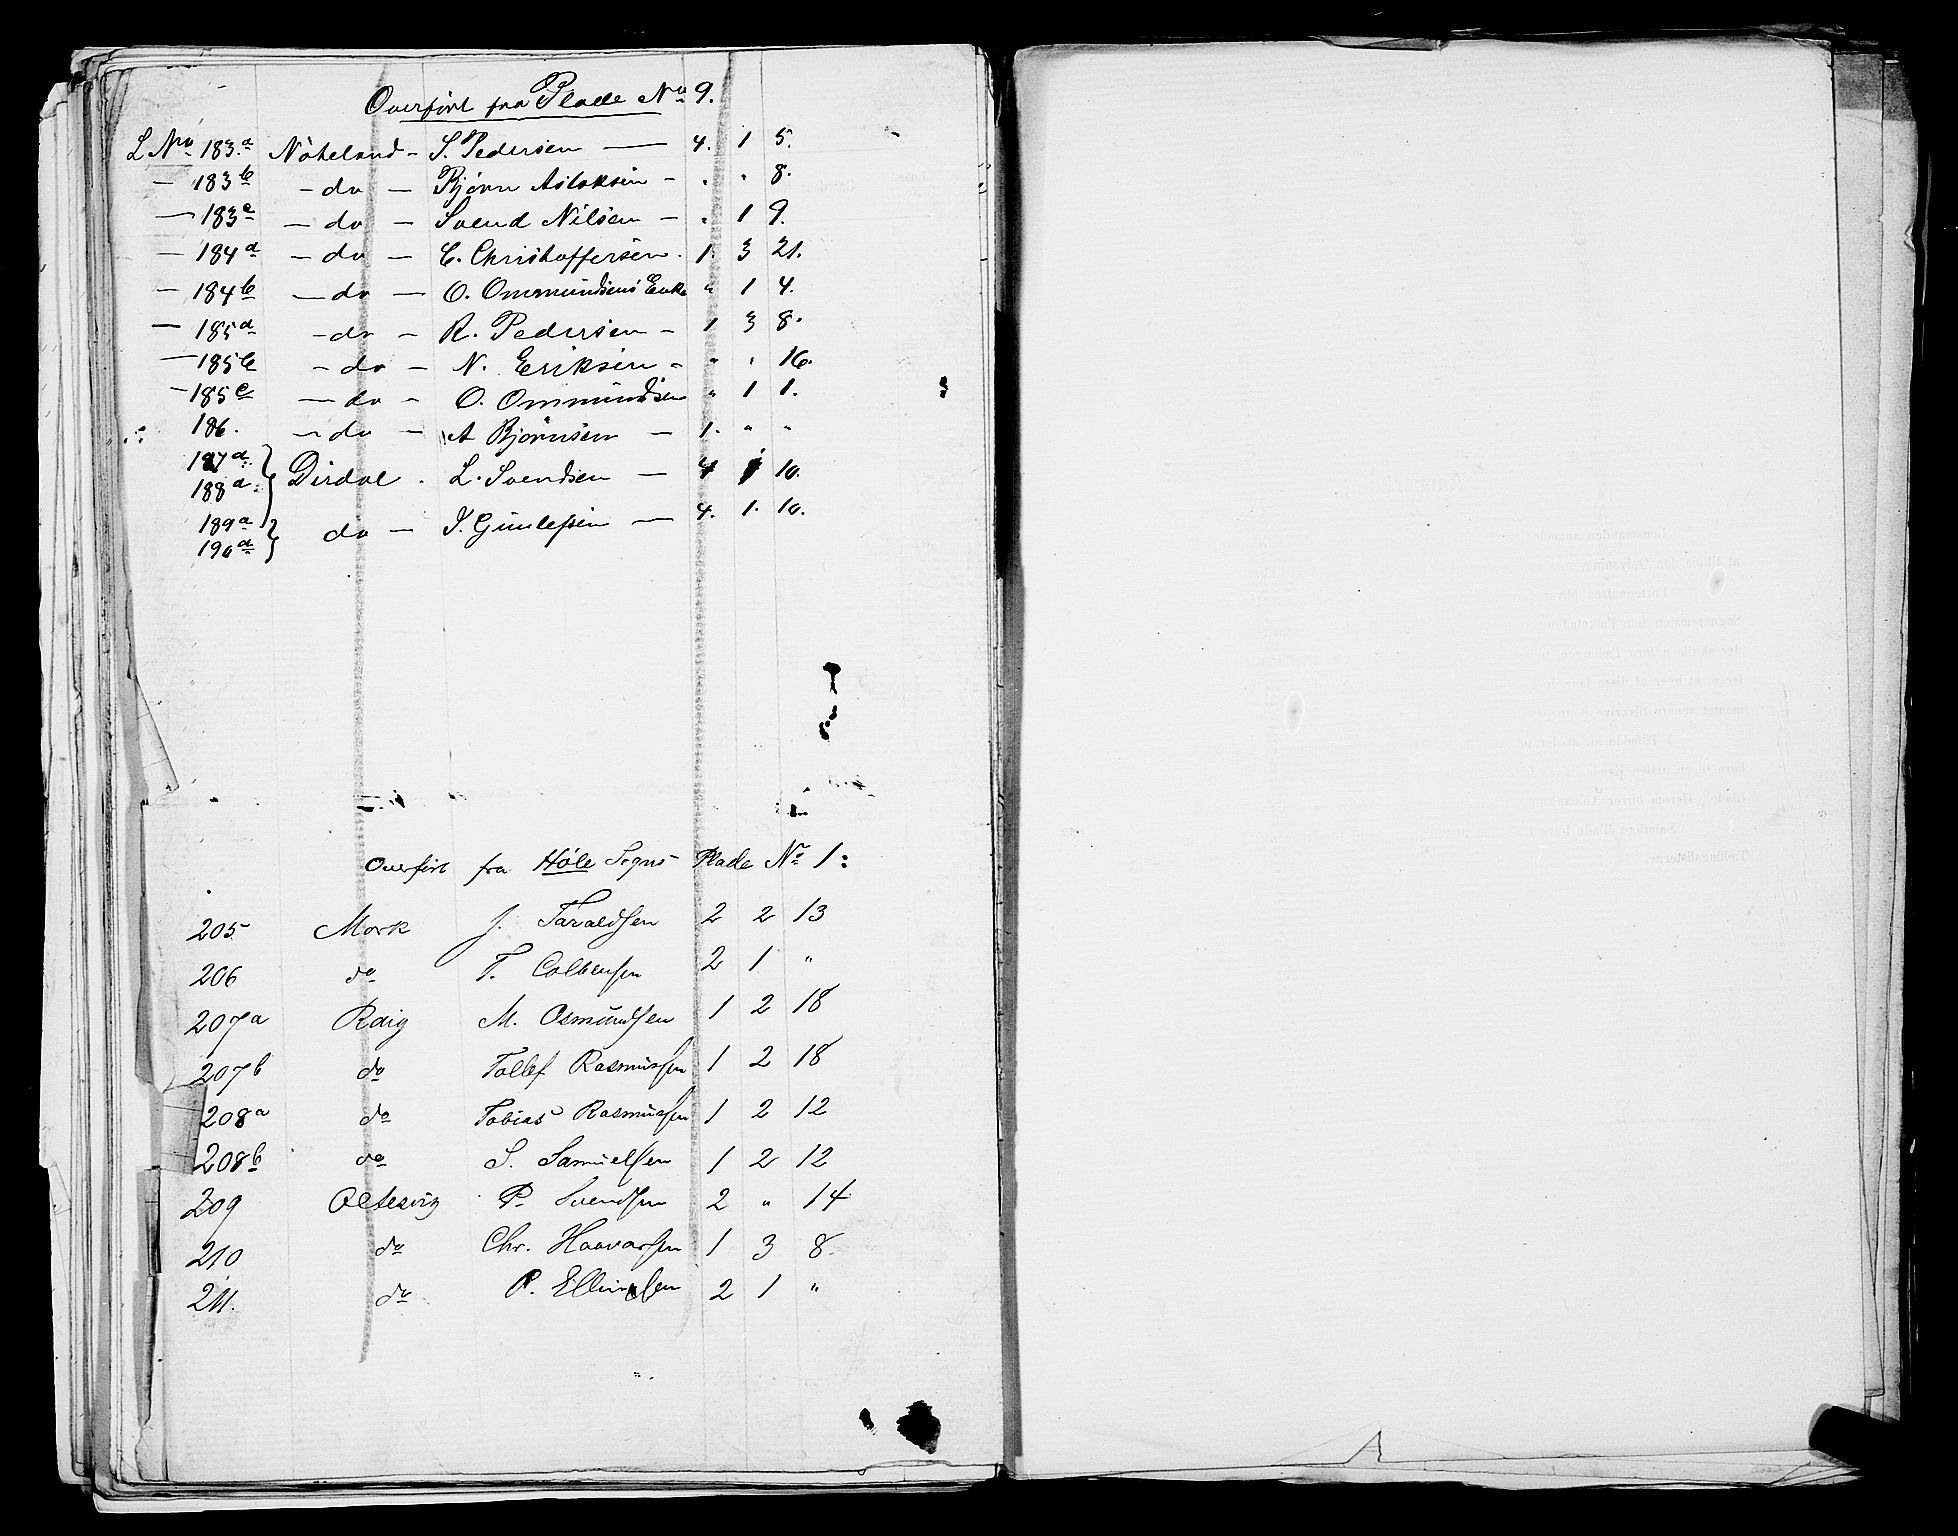 Overført fra Plade No 9.
L No 183.a Nöteland - S. Pedersen — 4. 1 5.
— 183b — do — Bjørn Aslaksen — " " 8.
— 183c — do — Svend Nilsen — " 1 9.
— 184a — do — C. Christoffersen. 1. 3 21.
— 184b — do — O. Ommundsens Enke " 1 4.
— 185a — do — R. Pedersen — 1 3 8.
— 185b — do — N. Eriksen — " " 16.
— 185c — do — O. Ommundsen " 1 1.
186. — do — A Bjørnsen — 1. " "
187a.
188a. } Dirdal. L. Svendsen — 4 1 10.
189a
190a } do — Gunlefsen — 4. 1. 10.
Overført fra Høle Sogns Plade No 1:
205 Mork J. Taraldsen 2 2 13
206 do T. Colbensen 2 1 "
207a M. Osmundsen 1 2 18
207b do Tollef Rasmussen 1 2 18
208a do Tobias Rasmussen 1 2 12
208b do S. Samuelsen 1 2 12
209 Oltesvig P. Svendsen 2 " 14
210 do Chr. Haavarsen 1 3 8.
211. do P. 2 1 "